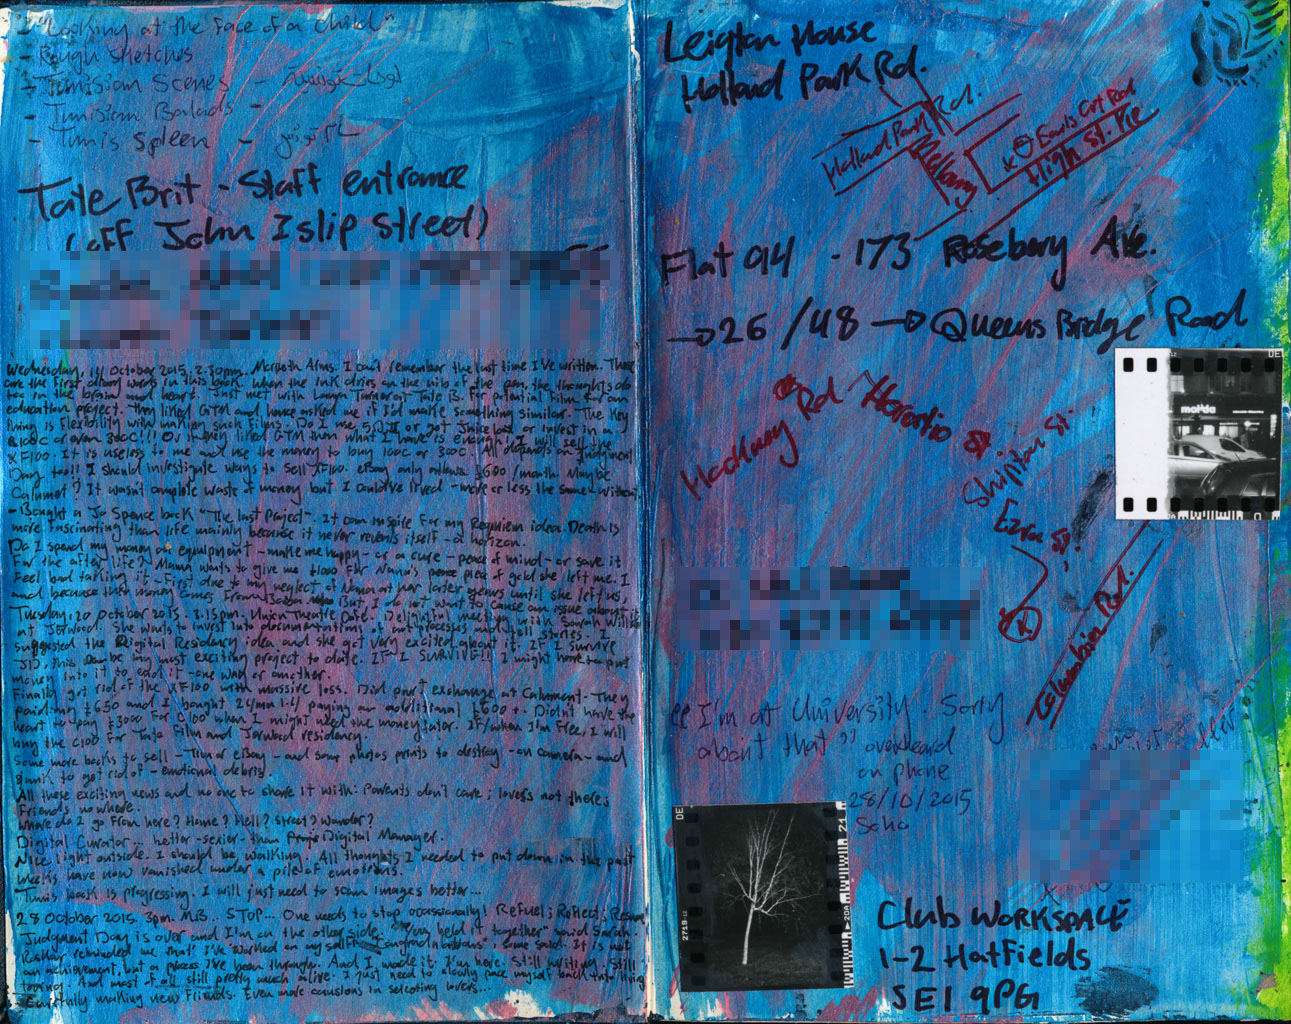 - "Looking at the Face of a child"
- Rough sketches
- Tunisian Scenes -
- Tunisian Ballads -
- Tunis Spleen -
Tate Brit - Staff entrance
(off John Islip Street)
Wednesday, 14 October 2015. 2:30pm. Morpeth Arms. I can't remember the last time I've written. These
are the first diary words in this book. When the ink dries on the nib of the pen, the thoughts do
too in the brain and heart. Just met with Laura Turner at Tate B. For potential Film for an
education project. They liked GTM and hence asked me if I'd make something similar. The key
thing is Flexibility with making such Films. Do I use 5D II or get or invest in a
100c or even 300c!!! Or if they liked GTM then what I have is enough! I will sell the
XF100. It is useless to me and use the money to buy 100c or 300c. All depends on Judgment
Day too!! I should investigate ways to sell XF100. eBay only allows £600/month. Maybe
Calumet? It wasn't complete waste of money but I could've lived - more or less the same - without.
- Bought a Jo Spence book "The Last Project". It can inspire for my Requiem idea. Death is
more fascinating than life mainly because it never reveals itself - a horizon.
Do I spend my money on equipment - make me happy - or a cure - peace of mind - or save it
For the after life? Mama wants to give me £1000 For Nana's piece of gold she left me. I
Feel bad taking it - First due to my neglect of Nana in her later years until she left us,
and because their money comes From But, I do not want to cause an issue about it
Tuesday, 20 October 2015. 3.15pm. Union Theatre Cafe. Delightful meeting with Sarah
at Jerwood. She wants to invest into documentations of art processes and tell stories. I
suggested the Digital Residency idea and she got very excited about it. If I survive
JD, this may be my most exciting project to date. IF I SURVIVE!! I might have to put
money into it to earn it - one way or another.
Finally got rid of the XF100 with massive loss. Did part exchange at Calumet - They
paid my £650 and I bought 24mm 1.4 paying an additional £600+. Didn't have the
heart to pay £3000 For C100 when I might need the money later. If/when I'm Free, I will
buy the C100 For Tate Film and Jerwood residency.
Some more books to sell - eBay - and some photos prints to destroy - on camera - and
junk to get rid of - emotional debris.
All these exciting news and no one to share it with: Parents don't care; lovers not there;
Friends nowhere.
Where do I go From here? Home? Hell? Street? Wander?
Digital Curator... better - sexier - than Digital Manager.
Nice light outside. I should be walking. All thoughts I needed to put down in the past
weeks have now vanished under a pile of emotions.
Tunis book is progressing. I will just need to scan images better...
28 October 2015. 3pm. MiB.. STOP... One needs to stop occassionally! Refuel; Reflect;
Judgment Day is over and I'm on the other side. "You held it together" said Sarah.
reminded me that I've "worked on my self". "Congratulations", some said. It is not
an achievement, but a place I've been through. And I made it. I'm here. Still writing. Still
And most of all still pretty much alive. I just need to slowly pace myself back into living
- Carefully making new Friends. Even more causious in selecting lovers...
Leighton House
Holland Park Rd.
Holland Park Rd.
Melbury
Earls Crt Rd
High St. Ple
Flat 94 - 173 Rosebery Ave.
→ 26 / 48 → Queens Bridge Road
Hackney Rd - Horatio St.
Shipton St.
Ezra St.
Columbia Rd.
"I'm at University. Sorry
about that" overheard
on phone
28/10/2015
Soho
Club WORKSPACE
1-2 HatFields
SE1 9PG